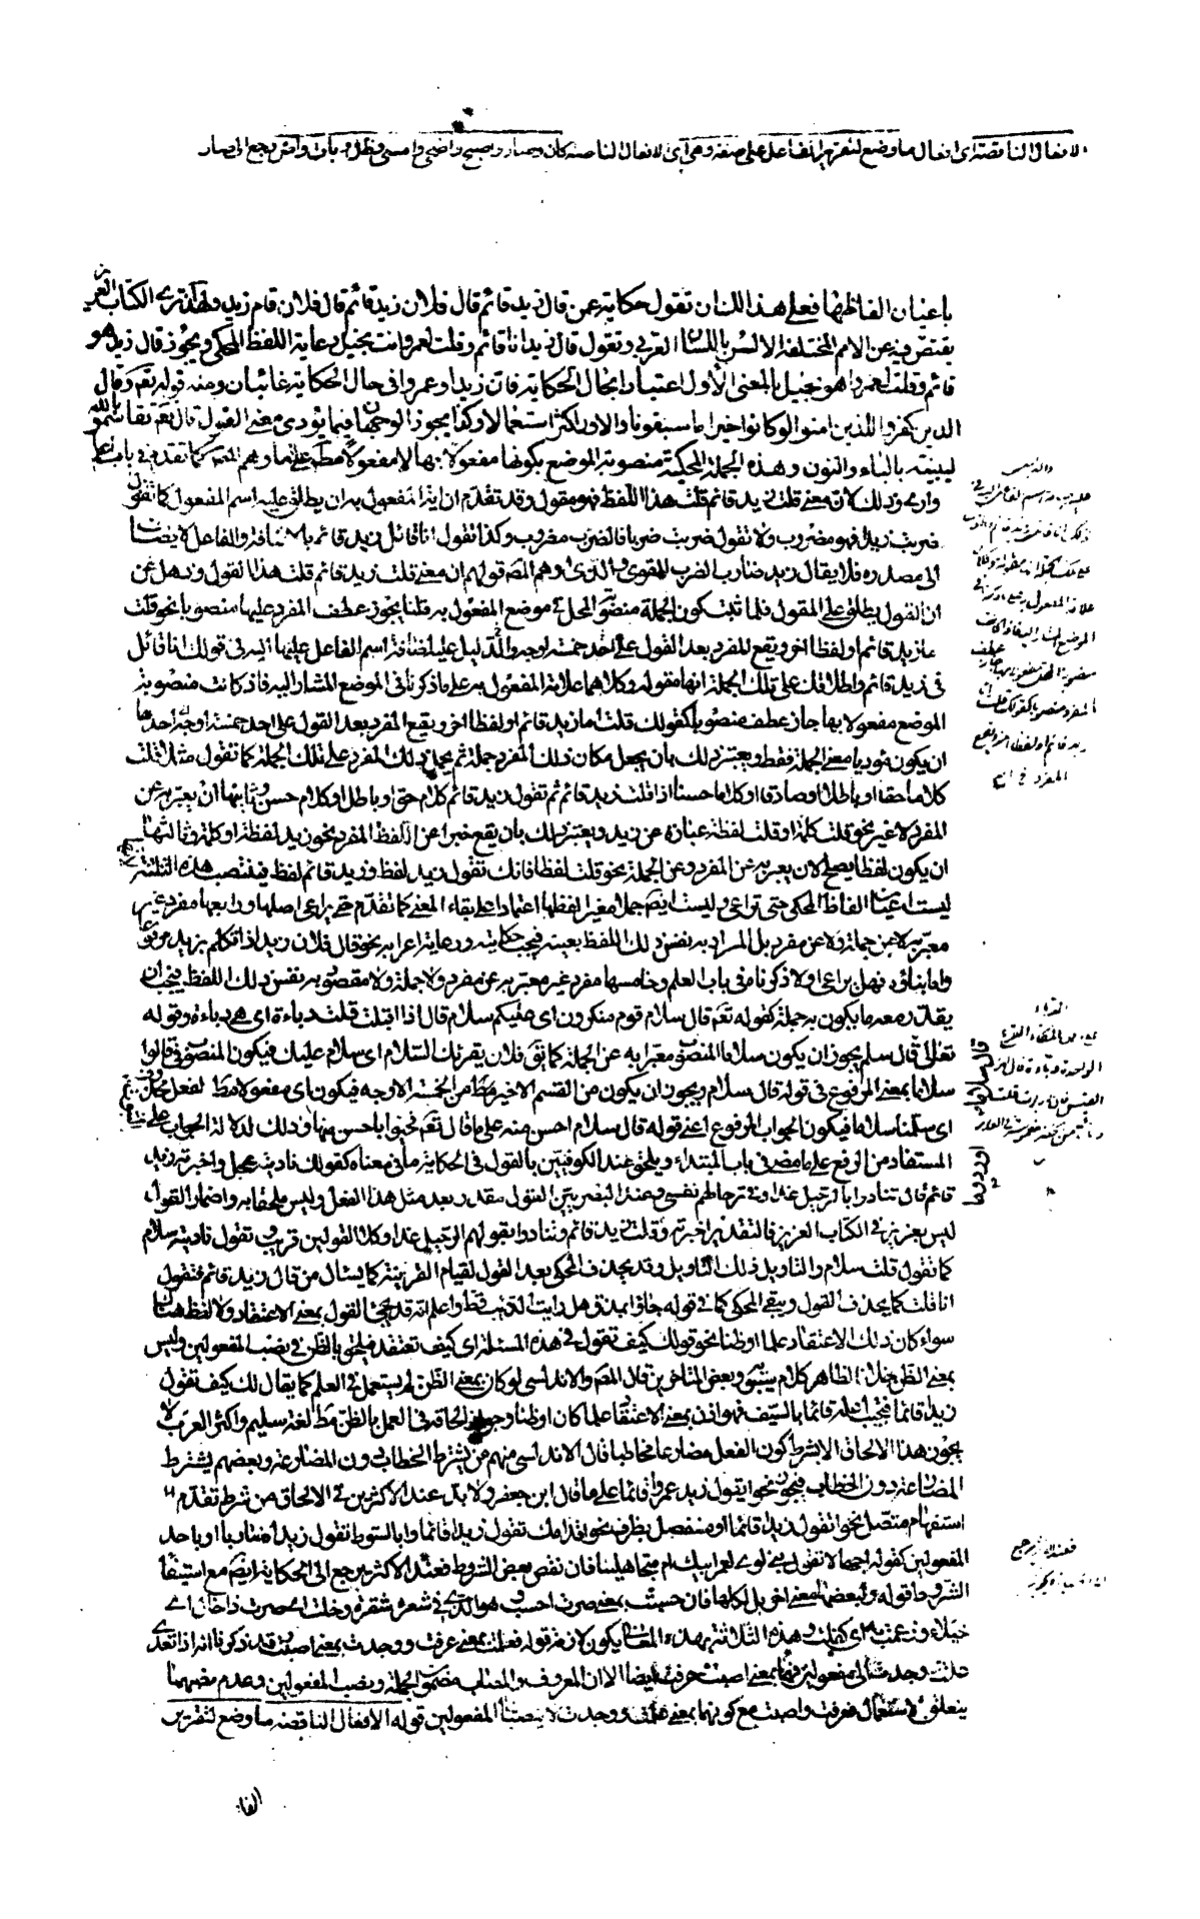 الافعال الناقصة اى افعال ما وضع لتقرير الفاعل على صفة وهى اى الافعال الناقصة كان وصار واصبح واضحى وامسى وظل وبات وآض يرجع الى صار
باعيان الفاظها فعلى هذا لك ان تقول حكاية عمن قال زيد قائم قال فلان زيد قائم قال فلان قام زيد ولهذا ترى الكتاب العزيز
يقتص فيه عن الامم المختلفة الالسن باللسان العربى وتقول قال زيد انا قائم وقلت لعمرو انت بخيل رعاية اللفظ المحكى ويجوز قال زيد هو
قائم وقلت لعمرو هو بخيل بالمعنى الاول اعتبارا بحال الحكاية فان زيدا وعمرا فى حال الحكاية غائبان ومنه قوله تعم وقال
الذين كفروا للذين امنوا لو كان خيرا ما سبقونا والاول اكثر استعمالا وكذا يجوز الوجهان فيما يؤدى معنى القول قال تعم تقاسموا بالله
لنبيتنه بالياء والنون وهذه الجملة المحكية منصوبة الموضع بكونها مفعولا بها لا مفعولا مطلقا على ما وهم كما تقدم فى باب اعلم
وارى وذلك لان معنى قلت زيد قائم قلت هذا اللفظ فهو مقول وقد تقدم ان اية المفعول به ان يطلق عليه اسم المفعول كما تقول
ضربت زيدا فهو مضروب ولا تقول ضربت ضربا فالضرب مضروب وكذا تقول انا قائل زيد قائم بالاضافة والفاعل لا يضاف
الى مصدره فلا يقال زيد ضارب الضرب القوى والذى اوهم المص قولهم ان معنى قلت زيد قائم قلت هذا القول وذهل عن
ان القول يطلق على المقول فلما ثبت كون الجملة منصوبة المحل فى موضع المفعول به قلنا يجوز عطف المفرد عليها منصوبا نحو قلت
ما زيد قائم او لفظا اخر ويقع المفرد بعد القول على احد خمسة اوجه والدليل عليه اضافة اسم الفاعل عليها اليه فى قولك انا قائل
فى زيد قائم واطلاقك على تلك الجملة انها مقولة وكلاهما علامة المفعول به على ما ذكرنا فى الموضع المشار اليه فاذا كانت منصوبة
الموضع مفعولا بها جاز عطف منصوب كقولك قلت اما زيد قائم او لفظا اخر ويقع المفرد بعد القول على احد خمسة اوجه احدها
ان يكون مؤديا معنى الجملة فقط ويعتبر ذلك بان يجعل مكان ذلك المفرد جملة ثم يحمل ذلك المفرد على تلك الجملة كما تقول مثلا قلت
كلاما حقا او باطلا او صادقا او كلاما حسنا اذا قلت زيد قائم ثم تقول زيد قائم كلام حق او باطل او كلام حسن وثانيها ان يعتبر به عن
المفرد لا غير نحو قلت كلمة او قلت لفظة عبارة عن زيد ويعتبر ذلك بان يقع خبرا عن اللفظ المفرد نحو زيد لفظة او كلمة وثالثها
ان يكون لفظا يصلح لان يعبر به عن المفرد وعن الجملة نحو قلت لفظا فانك تقول زيد لفظ وزيد قائم لفظ فينتصب هذه الثلثة
ليست اعيان الفاظ المحكى حتى تراعى وليست ايضا جملا مغيرا لفظها اعتمادا على بقاء المعنى كما تقدم حتى يراعى اصلها ورابعها مفرد غير
معبر به لا عن جملة ولا عن مفرد بل المراد به نفس ذلك اللفظ بعينه فيجب حكايته ورعاية اعرابه نحو قال فلان زيد اذا تكلم بزيد مرفوعا
واما بناؤه فهل يراعى اولا ذكرنا فى باب العلم وخامسها مفرد غير معبر به عن مفرد ولا جملة ولا مقصود به نفس ذلك اللفظ فيجب ان
يقدر معه ما يكون به جملة كقوله تعم قال سلام قوم منكرون اى عليكم سلام قال اذا اقبلت قلت دباءة اى هى دباءة وقوله
تعالى قال سلم يجوز ان يكون سلاما المنصوب معبرا به عن الجملة كما تقول فلان يقرئك السلام اى سلام عليك فيكون المنصوب فى قالوا
سلاما بمعنى المرفوع فى قوله قال سلام ويجوز ان يكون من القسم الاخير من الخمسة الاوجه فيكون اى مفعولا مطلقا لفعل محذوف
اى سلمنا سلاما فيكون الجواب المرفوع اعنى قوله قال سلام احسن منه على ما قال تعم فحيوا باحسن منها وذلك لدلالة الجواب على
المستفاد من الرفع على ما مضى فى باب المبتداء ويلحق عند الكوفيين بالقول فى الحكاية ما فى معناه كقولك ناديته عجل واخبرته زيد
قائم قال تنادوا بالرحيل غدا وفى ترحالهم نفسى وعند البصريين القول مقدر بعد مثل هذا الفعل وليس ملحقا به واضمار القول
ليس بعزيز فى الكتاب العزيز فالتقدير اخبرته وقلت زيد قائم وتنادوا بقولهم الرحيل غدا وكلا القولين قريب وتقول ناديته سلام
كما تقول قلت سلام والتاويل ذلك التاويل وقد يحذف المحكى بعد القول لقيام القرينة كما يسئال من قال زيد قائم فتقول
انا قلت كما يحذف القول ويبقى المحكى كما فى قوله جاؤا بمذق هل رايت الذئب قط واعلم انه قد يجئ القول بمعنى الاعتقاد ولا لفظ هناك
سواء كان ذلك الاعتقاد علما او ظنا نحو قولك كيف تقول فى هذه المسئلة اى كيف تعتقد فيلحق بالظن فى نصب المفعولين وليس
بمعنى الظن خلافا لظاهر كلام سيبويه وبعض المتاخرين قال المص والاندلسى لو كان بمعنى الظن لم يستعمل فى العلم كما يقال لك كيف تقول
زيدا قائما فتجيب اعلمه قائما بالسيف فهو اذن بمعنى الاعتقاد علما كان او ظنا وجواز الحاقه فى العمل بالظن مطلقا لغة سليم واكثر العرب لا
يجوز هذا الالحاق الا بشرط كون الفعل مضارعا مخاطبا قال الاندلسى منهم من يشترط الخطاب دون المضارعة وبعضهم يشترط
المضارعة دون الخطاب فيجوز نحو ايقول زيد عمروا قائما على ما قال ابن جعفر ولا بد عند الاكثرين فى الالحاق من شرط تقدم
استفهام متصل نحو اتقول زيدا قائما او منفصل بظرف نحو اقدامك تقول زيدا قائما وبالسوط تقول زيدا ضاربا او باحد
المفعولين كقوله اجهالا تقول بنى لوى لعمر ابيك ام متجاهلينا فان نقص بعض الشروط فعند الاكثر يرجع الى الحكاية ايضا مع استيفاء
الشروط قوله ولبعضها معنى اخر بل لكلها فان حسبت بمعنى صرت احسب وهو الذى فى شعره شقرة وخلت اى صرت ذا خال اى
خيلاء وزعمت به اى كفلت وهذه الثلاثة بهذه المعانى يكون لازمة قوله فعلمت بمعنى عرفت ووجدت بمعنى اصبت قد ذكرنا انه اذا تعدى
علمت ووجدت الى مفعولين فهما بمعنى اصبت وعرفت ايضا الا ان المعروف والمصاب مضمون الجملة ونصب المفعولين وعدم نصبهما
يتعلق بالاستعمال فعرفت واصبت مع كونهما بمعنى علمت ووجدت لا ينصبان المفعولين قوله الافعال الناقصة ما وضع لتقرير
الفا